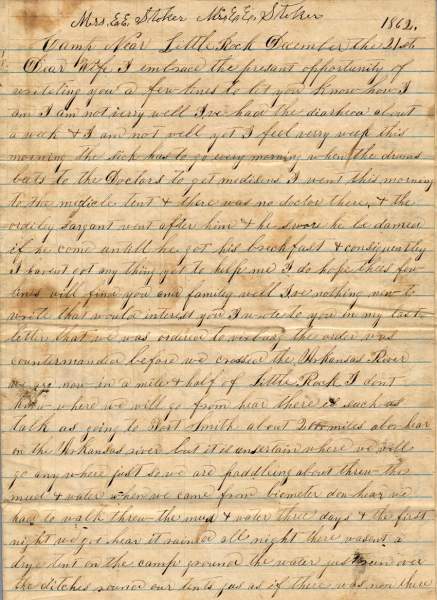 Mrs, E,E, Stoker Mrs, E,E, Stoker
1862,
Camp Near Little Rock December the 21st
Dear Wife I embrace the presant opportunity of
writeting you a few lines to let you know how I
am I am not verry well I,ve had the diarheea about
a week & I am not well yet I feel verry week this
morning the sick has to go every morning when the drums
beats to the Doctors to get medisens I went this morning
to the medicle tent & there was no doctor there, & the
orderly sargant went after him & he swore he be damed
if he come untill he got his breckfast & consiqueatley
I havent got any thing yet to help me I do hope thees few
lines will find you and family well I,ve nothing new to
write that would interest you I wrote to you in my last
letter that we was ordered to the order was
countermanded before we crossed the Arkansas River
we are now in a mile & half of Little Rock I dont
know where we will go from hear there is such as
talk as going to Fort Smith about 200 miles abov hear
on the Arkansas river but it is unsertain where we will
go any where just so we are paddleing about threw the
mud & water when we came from hear we
had to walk threw the mud & water three days & the first
night we got hear it rained all night there wasent a
drye tent on the camp ground the water just run over
the ditches round our tents jus as if there was non there